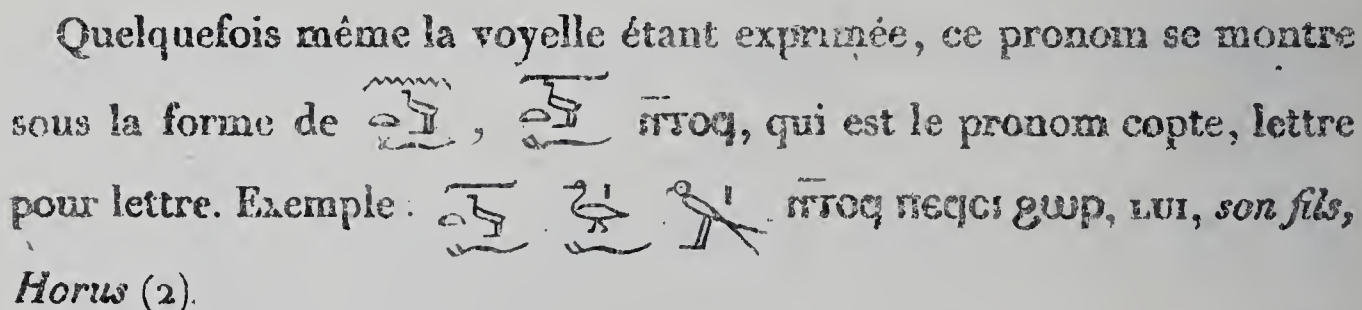 Quelquefois même la voyelle étant exprimée, ce pronom se montre
sous la forme de , ⲛ̅ⲧⲟϥ, qui est le pronom copte, lettre
pour lettre. Exemple : ⲛ̅ⲧⲟϥ ⲡⲉϥⲥⲓ ϩⲱⲣ, LUI, son fils,
Horus (2).